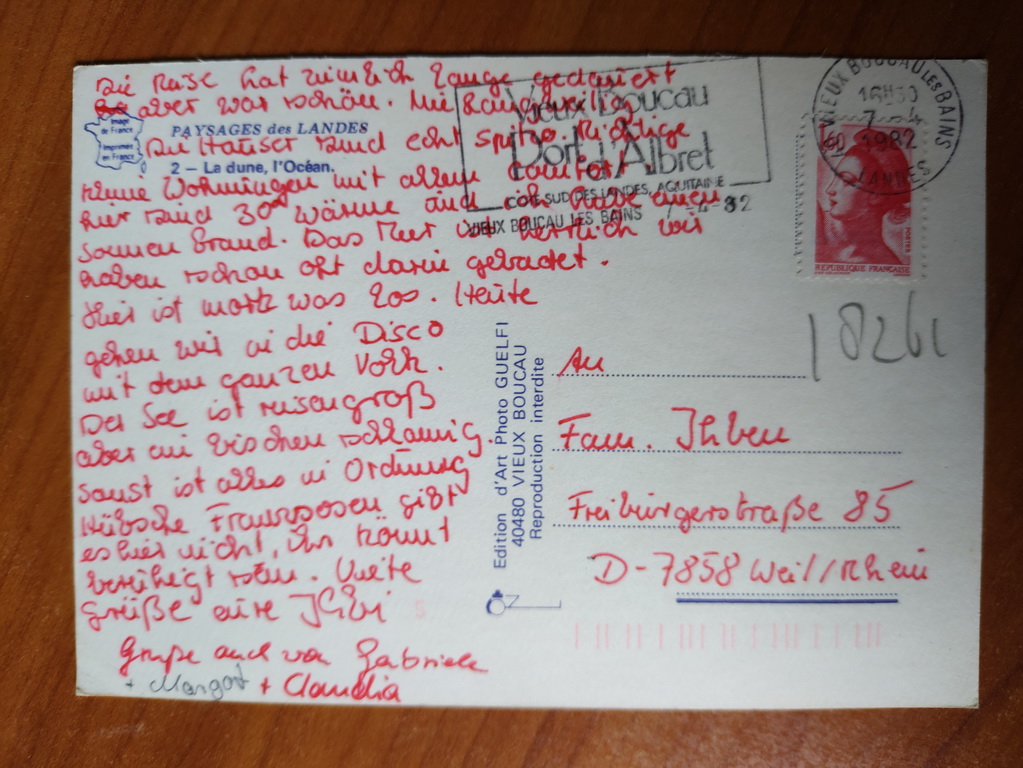 Die Reise hat ziemlich lange gedauert
aber war schön. Nie langweilig
Image
de France
Imprimée
en France
PAYSAGES des LANDES
Die Häuser sind echt spitze. Richtige
2 – La dune, l'Océan.
kleine Wohnungen mit allem Comfort.
Hier sind 30° wärme und ich habe einen
Sonnenbrand. Das Meer ist herrlich wir
haben schon oft darin gebadet.
Hier ist was los. Heute
gehen wir in die Disco
mit dem ganzen Volk.
Der See ist riesengroß
aber ein bischen schlamig.
sonst ist alles in Ordnung
Hübsche Franzosen gibt
es hier nicht, ihr könnt
beruhigt sein. Viele
Grüße eure
Grüße auch von Gabriele
+ Margot + Claudia
Vieux Boucau
Port d'Albret
COTE SUD DES LANDES, AQUITAINE
VIEUX BOUCAU LES BAINS 7-4-82
VIEUX BOUCAU LES BAINS
16H30
7 - 4
1982
LANDES
REPUBLIQUE FRANÇAISE
POSTES
18261
Edition d'Art Photo GUELFI
40480 VIEUX BOUCAU
Reproduction interdite
An
Fam. Ihben
Freiburgerstraße 85
D-7858 Weil/Rhein